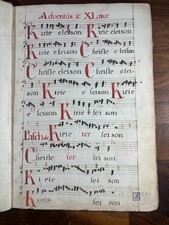 Adventus &
Kirie eleison Kirie eleison
Kirie eleison Christe eleison
Christe eleison Christe
eleison Kirie eleison Kirie
eleison Kirie eleison
Kirie ter lei son
Christe ter lei son
Kirie lei son
Kirie lei son